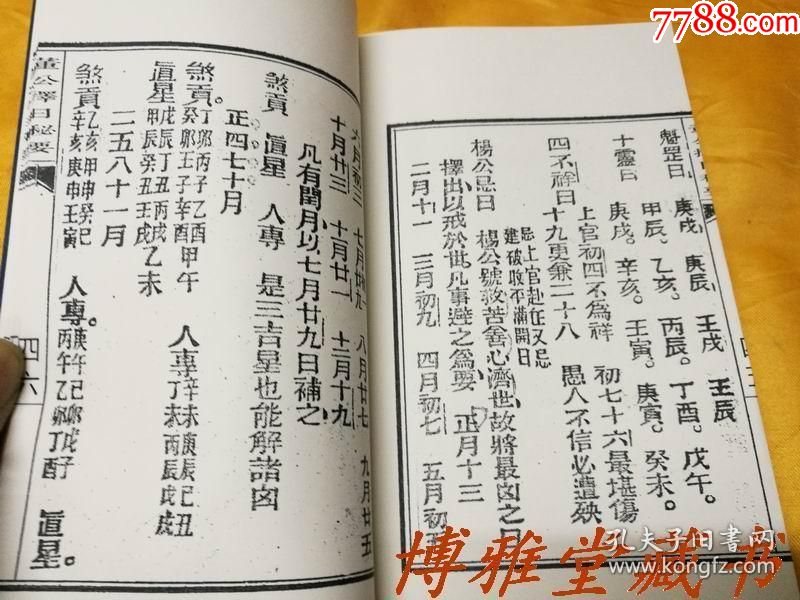 7788.com
魁罡日 庚戌 庚辰 壬戌 壬辰
十靈日 甲辰。乙亥。丙辰。丁酉。戊午。
庚戌。辛亥。壬寅。庚寅。癸未。
四不祥日 上官初四不為祥 初七十六最堪傷
十九更兼二十八 愚人不信必遭殃
忌上官赴任又忌
建破收平滿開日
楊公忌日 楊公號救苦善心濟世故將最凶之日
擇出以戒於世凡事避之為要 正月十三
二月十一 三月初九 四月初七 五月初五
六月初三 七月廿九 八月廿七 九月廿五
十月廿三 十一月廿一 十二月十九
凡有閏月以七月廿九日補之
煞貢 眞星 人專 是三吉星也能解諸凶
正四七十月
煞貢。丁卯丙子乙酉甲午
癸卯壬子辛酉
眞星 戊辰丁丑丙戌乙未
甲辰癸丑壬戌
人專 辛未庚辰己丑
丁未丙辰戊戌
二五八十一月
煞貢 乙亥甲申癸巳
辛亥庚申壬寅
人專。
眞星。
董公擇日秘要
四六
博雅堂藏书
孔夫子旧书网
www.kongfz.com